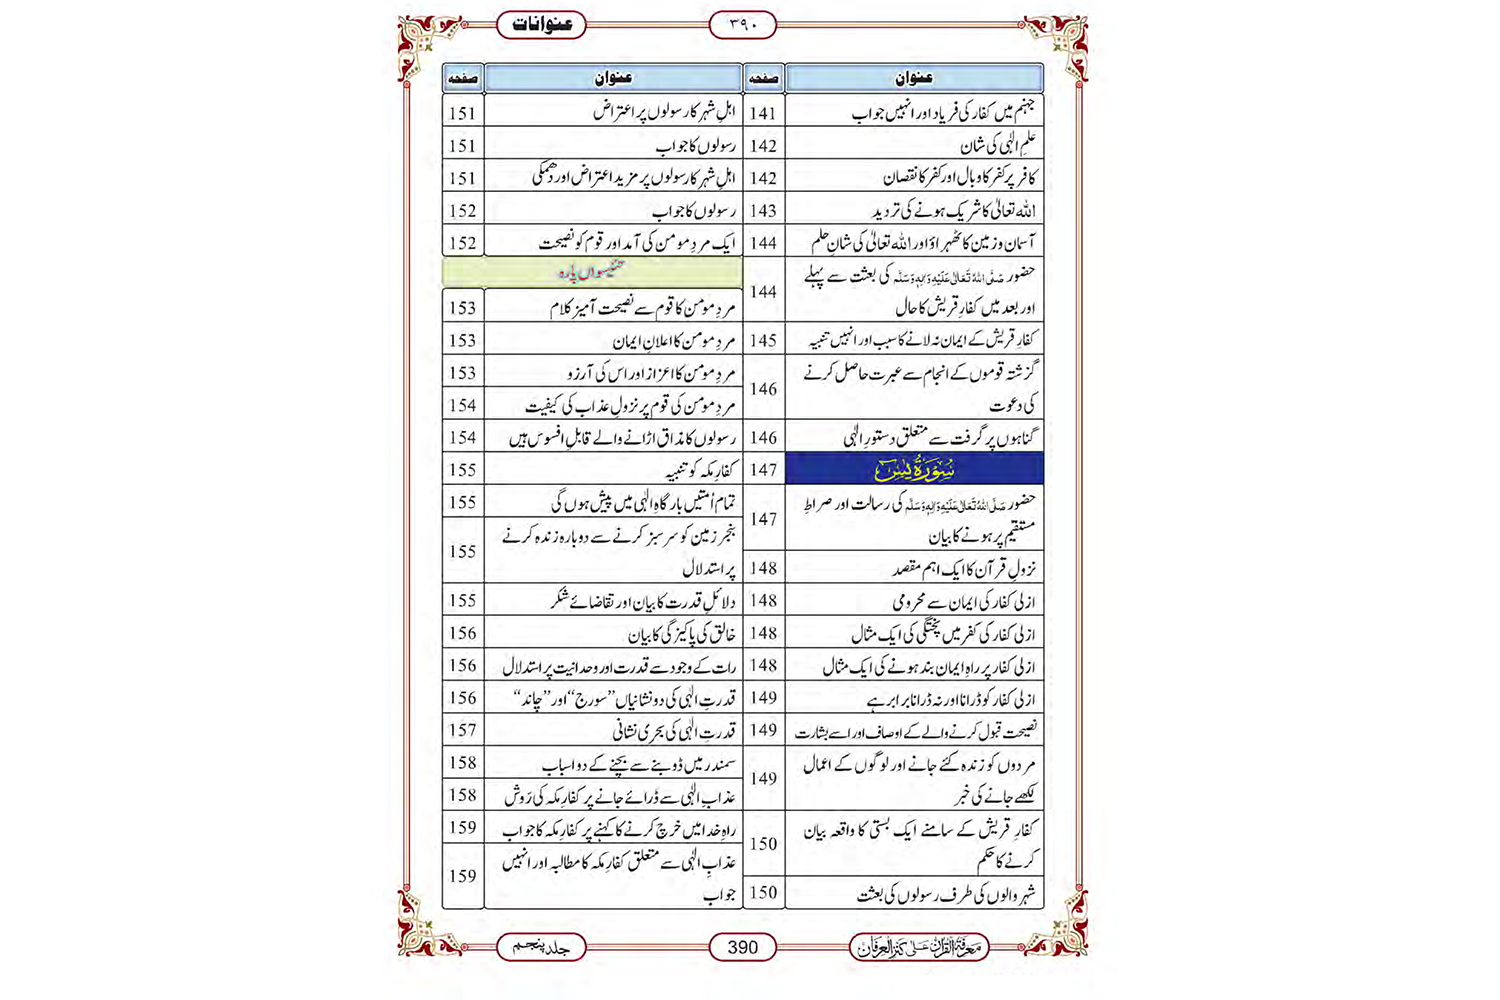 عنوانات
۳۹۰
عنوان صفحہ
جہنم میں کفار کی فریاد اور انہیں جواب 141
علمِ الٰہی کی شان 142
کافر پر کفر کا وبال اور کفر کا نقصان 142
اللہ تعالیٰ کا شریک ہونے کی تردید 143
آسمان و زمین کا ٹھہراؤ اور اللہ تعالیٰ کی شانِ حلم 144
حضور صَلَّی اللہُ تَعَالٰی عَلَیْہِ وَاٰلِہٖ وَسَلَّم کی بعثت سے پہلے
اور بعد میں کفارِ قریش کا حال 144
کفارِ قریش کے ایمان نہ لانے کا سبب اور انہیں تنبیہ 145
گزشتہ قوموں کے انجام سے عبرت حاصل کرنے
کی دعوت 146
گناہوں پر گرفت سے متعلق دستورِ الٰہی 146
سُوْرَۃُ یٰسٓ 147
حضور صَلَّی اللہُ تَعَالٰی عَلَیْہِ وَاٰلِہٖ وَسَلَّم کی رسالت اور صراطِ
مستقیم پر ہونے کا بیان 147
نزولِ قرآن کا ایک اہم مقصد 148
ازلی کفار کی ایمان سے محرومی 148
ازلی کفار کی کفر میں پختگی کی ایک مثال 148
ازلی کفار پر راہِ ایمان بند ہونے کی ایک مثال 148
ازلی کفار کو ڈرانا اور نہ ڈرانا برابر ہے 149
نصیحت قبول کرنے والے کے اوصاف اور اسے بشارت 149
مردوں کو زندہ کئے جانے اور لوگوں کے اعمال
لکھے جانے کی خبر 149
کفارِ قریش کے سامنے ایک بستی کا واقعہ بیان
کرنے کا حکم 150
شہر والوں کی طرف رسولوں کی بعثت 150
عنوان صفحہ
اہلِ شہر کا رسولوں پر اعتراض 151
رسولوں کا جواب 151
اہلِ شہر کا رسولوں پر مزید اعتراض اور دھمکی 151
رسولوں کا جواب 152
ایک مردِ مومن کی آمد اور قوم کو نصیحت 152
تئیسواں پارہ
مردِ مومن کا قوم سے نصیحت آمیز کلام 153
مردِ مومن کا اعلانِ ایمان 153
مردِ مومن کا اعزاز اور اس کی آرزو 153
مردِ مومن کی قوم پر نزولِ عذاب کی کیفیت 154
رسولوں کا مذاق اڑانے والے قابلِ افسوس ہیں 154
کفارِ مکہ کو تنبیہ 155
تمام اُمتیں بارگاہِ الٰہی میں پیش ہوں گی 155
بنجر زمین کو سرسبز کرنے سے دوبارہ زندہ کرنے
پر استدلال 155
دلائلِ قدرت کا بیان اور تقاضائے شکر 155
خالق کی پاکیزگی کا بیان 156
رات کے وجود سے قدرت اور وحدانیت پر استدلال 156
قدرتِ الٰہی کی دو نشانیاں ”سورج“ اور ”چاند“ 156
قدرتِ الٰہی کی بحری نشانی 157
سمندر میں ڈوبنے سے بچنے کے دو اسباب 158
عذابِ الٰہی سے ڈرائے جانے پر کفارِ مکہ کی رَوش 158
راہِ خدا میں خرچ کرنے کا کہنے پر کفارِ مکہ کا جواب 159
عذابِ الٰہی سے متعلق کفارِ مکہ کا مطالبہ اور انہیں
جواب 159
معرفۃ القرآن علی کنز العرفان
390
جلد پنجم